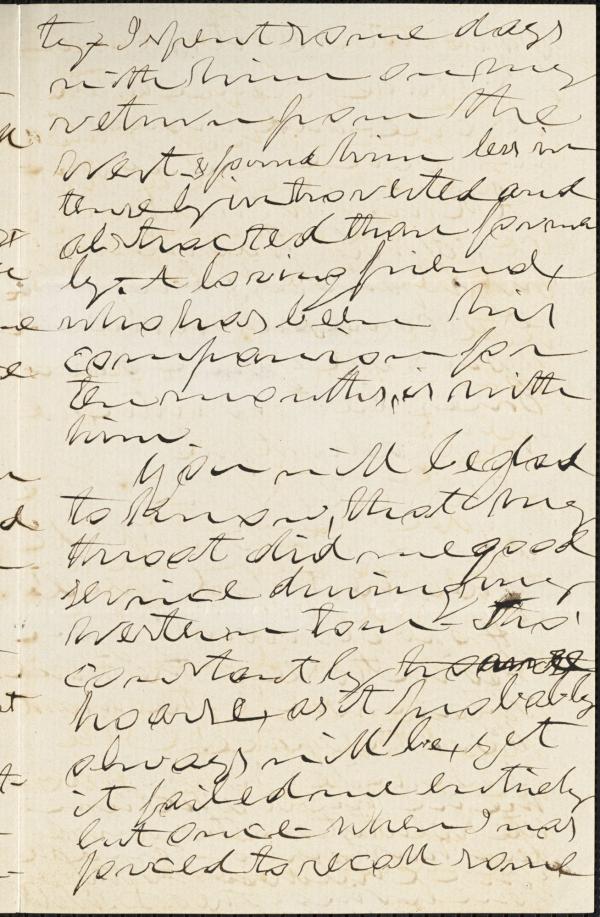 ty. I spent some days
with him on my
return from the
West, & found him less in
tensely introverted and
abstracted than forma
ly. A loving friend,
who has been his
companion for
ten months, is with
him.
You will be glad
to know, that my
throat did me good
service during my
western tour. Tho'
constantly
hoarse, as it probably
always will be, yet
it failed me entirely
but once when I was
forced to recall some